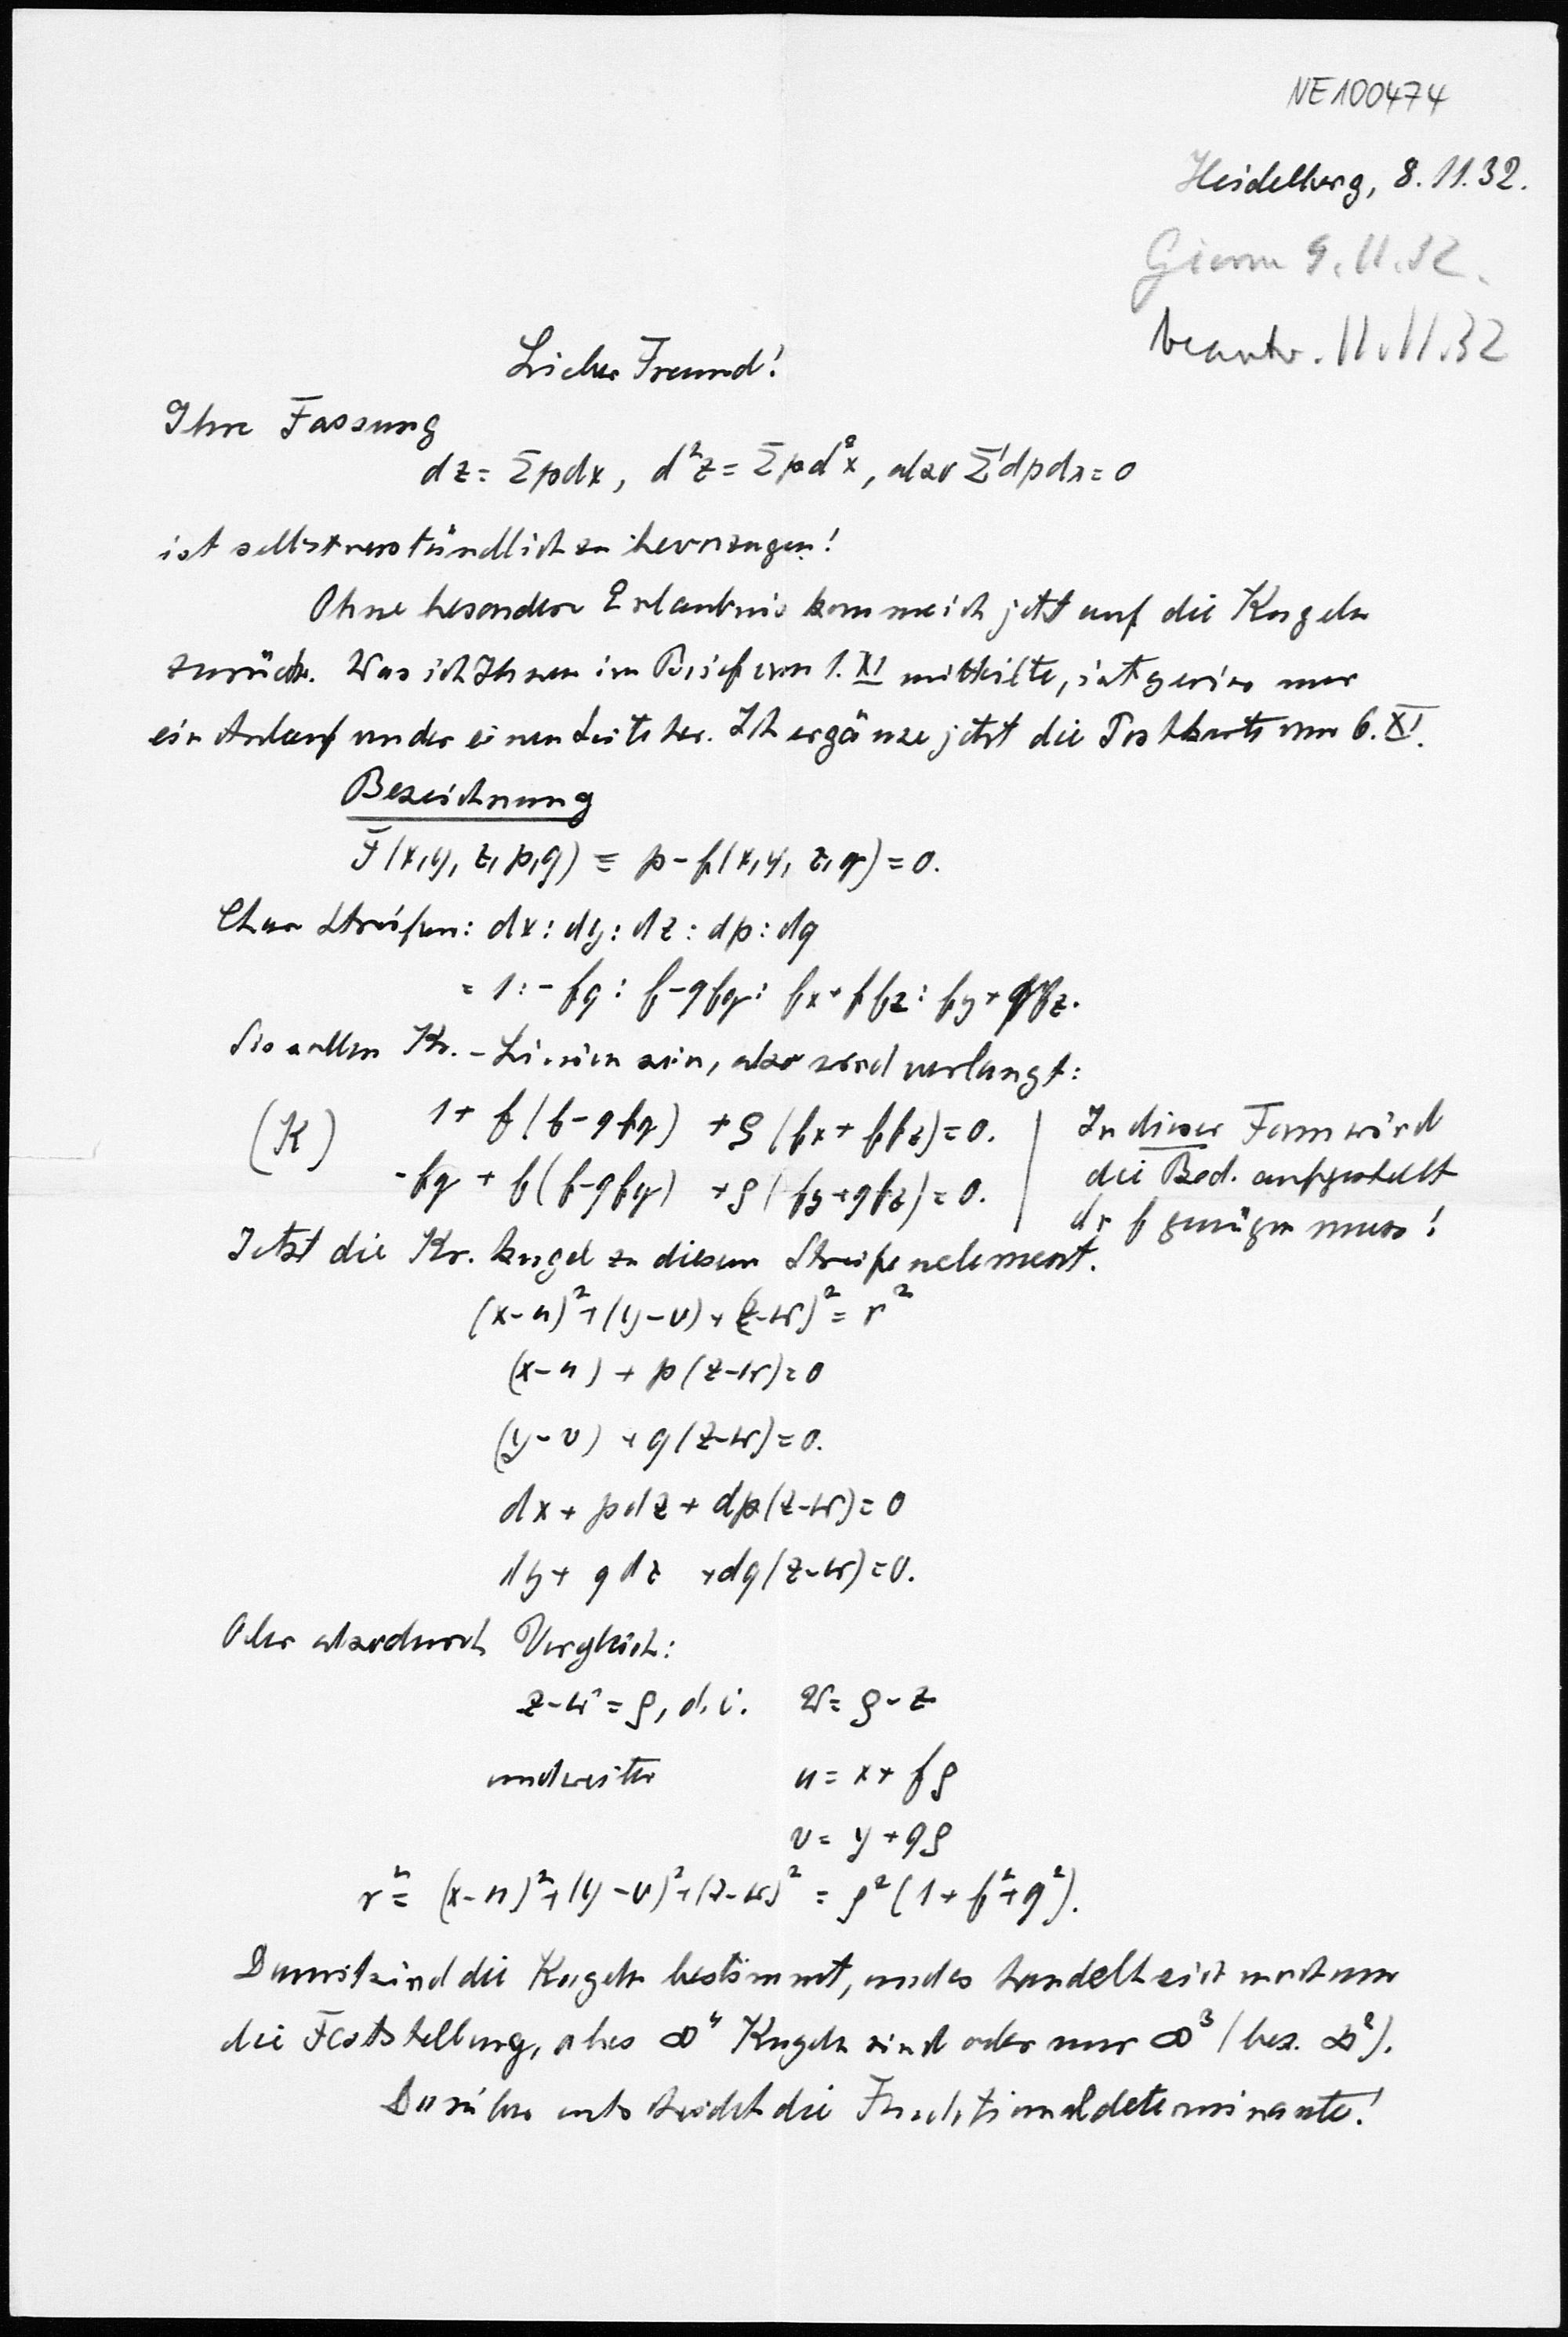 NE100474
Heidelberg, 8.11.32.
9.11.32.
beantw. 11.11.32
Lieber Freund!
Ihre Fassung
dz = Σpdx, d²z = Σpd²x, also Σdpdx = 0
ist selbstverständlich zu bevorzugen!
Ohne besondere Erlaubnis komme ich jetzt auf die Kugeln
zurück. Was ich Ihnen im Brief vom 1. XI mitteilte, ist gewiss nur
ein Anlauf von der einen Seite her. Ich ergänze jetzt die Postkarte vom 6. XI.
Bezeichnung
F(x,y, z, p,q) ≡ p - f(x,y, z, q) = 0.
Char Streifen: dx : dy : dz : dp : dq
= 1 : - fq : f - qfq : fx + ffz : fy + qfz.
Sie sollen Kr. - Linien sein, also wird verlangt:
(K) 1 + f(f - qfq) + ϱ(fx + ffz) = 0. | In dieser Form wird
- fq + f(f - qfq) + ϱ(fy + qfz) = 0. | die Bed. aufgestellt
der f genügen muss!
Jetzt die Kr. kugel zu diesem Streifenelement.
(x-u)² + (y-v) + (z-w)² = r²
(x-u) + p(z-w) = 0
(y-v) + q(z-w) = 0.
dx + pdz + dp(z-w) = 0
dy + qdz + dq(z-w) = 0.
Oder also durch Vergleich:
z-w = ϱ, d. i. w = ϱ - z
und weiter u = x + fϱ
v = y + qϱ
r² = (x-u)² + (y-v)² + (z-w)² = ϱ²(1 + f² + q²).
Damit sind die Kugeln bestimmt, und es handelt sich noch um
die Feststellung, ob es ∞⁴ Kugeln sind oder nur ∞³ (bez. ∞²).
Darüber entscheidet die Funktionaldeterminante!